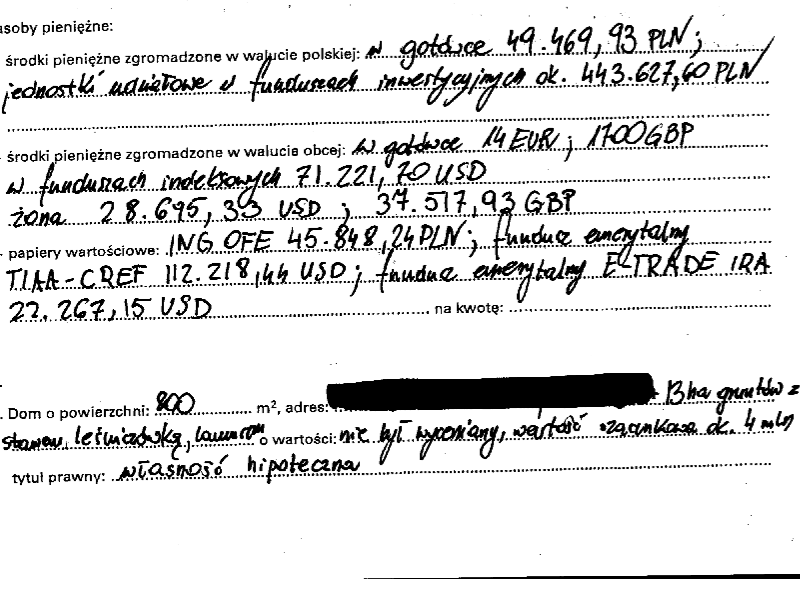 asoby pieniężne:
środki pieniężne zgromadzone w walucie polskiej: w gotówce 49.469,93 PLN;
jednostki udziałowe w funduszach inwestycyjnych ok. 443.627,60 PLN
środki pieniężne zgromadzone w walucie obcej: w gotówce 14 EUR; 1700 GBP
w funduszach indeksowych 71.221,70 USD
żona 28.695,33 USD; 37.517,93 GBP
papiery wartościowe: ING OFE 45.848,24 PLN; fundusz emerytalny
TIAA-CREF 112.218,44 USD; fundusz emerytalny E-TRADE IRA
22.267,15 USD na kwotę:
. Dom o powierzchni: 800 m², adres: 13 ha gruntów z
stawem, leśniczówką, o wartości: nie był wyceniany, wartość szacunkowa ok. 4 mln
tytuł prawny: własność hipoteczna